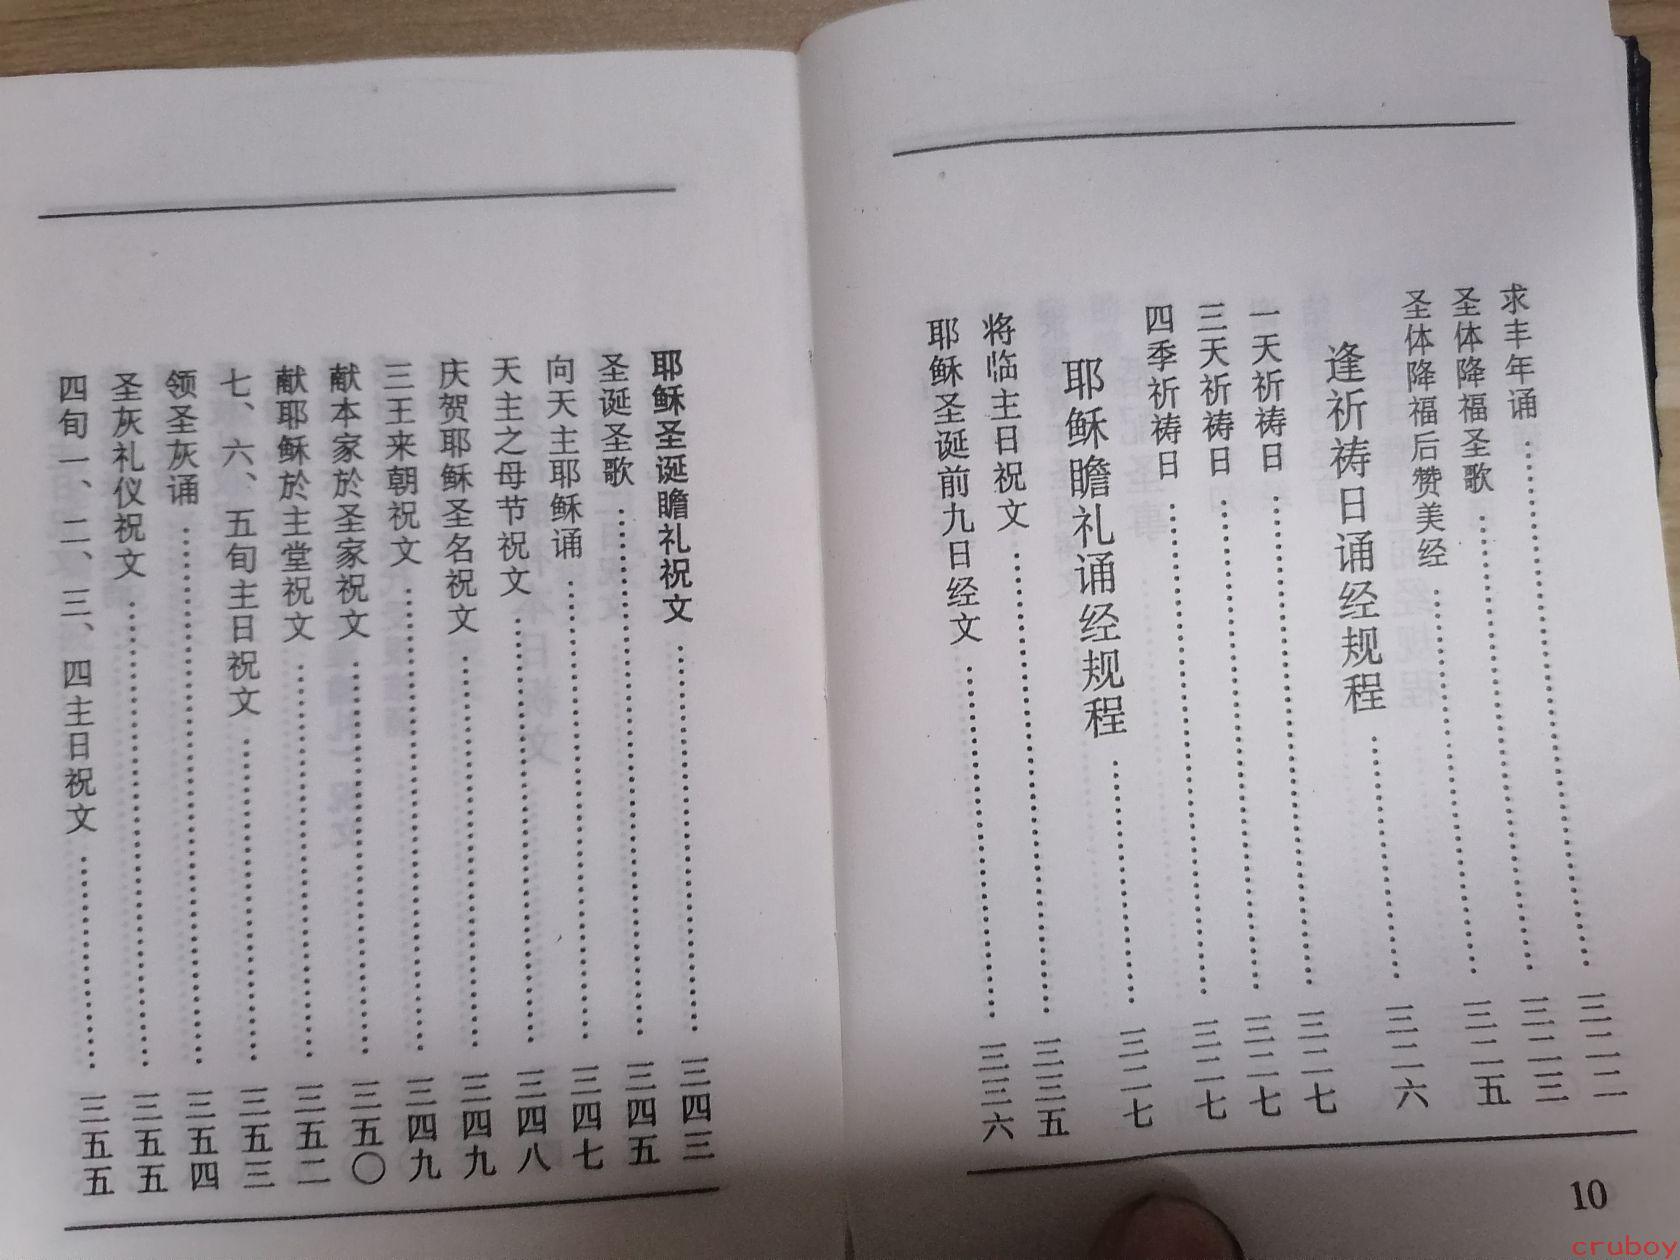 求丰年诵 三二二
圣体降福圣歌 三二三
圣体降福后赞美经 三二五
逢祈祷日诵经规程 三二六
一天祈祷日 三二七
三天祈祷日 三二七
四季祈祷日 三二七
耶稣瞻礼诵经规程 三二七
将临主日祝文 三三五
耶稣圣诞前九日经文 三三六
10
耶稣圣诞瞻礼祝文 三四三
圣诞圣歌 三四五
向天主耶稣诵 三四七
天主之母节祝文 三四八
庆贺耶稣圣名祝文 三四九
三王来朝祝文 三四九
献本家於圣家祝文 三五〇
献耶稣於主堂祝文 三五二
七、六、五旬主日祝文 三五三
领圣灰诵 三五四
圣灰礼仪祝文 三五五
四旬一、二、三、四主日祝文 三五五
cruboy